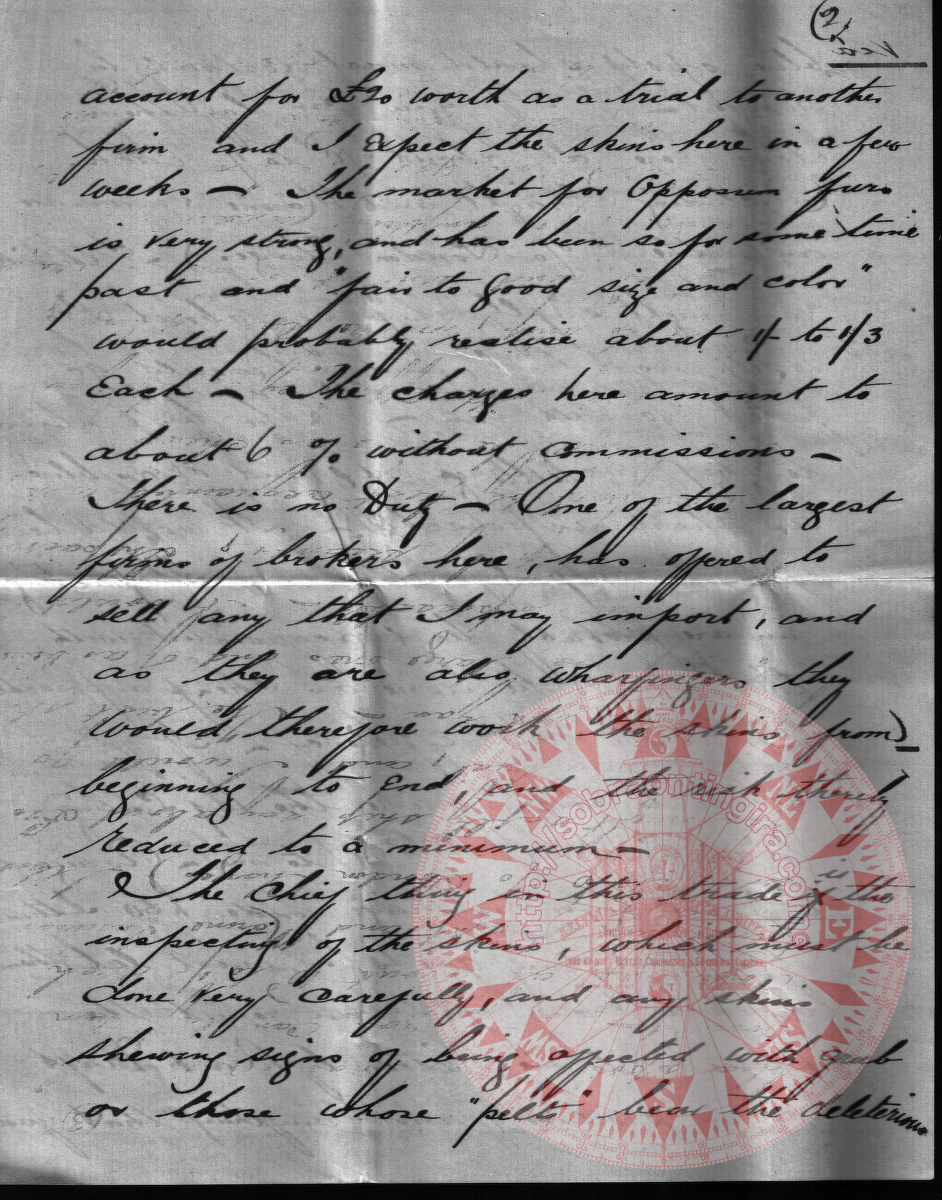 (2)
account for £20 worth as a trial to another
firm and I Expect the skins here in a few
weeks — The market for Opposum furs
is very strong, and has been so for some time
past and "fair to good size and color"
would probably realise about 1/- to 1/3
Each — The charges here amount to
about 6 % without Commissions —
There is no Duty — One of the largest
firms of brokers here, has offered to
sell any that I may import, and
as they are also Wharfingers they
would therefore work the skins from
beginning to End, and the risk thereby
reduced to a minimum —
The Chief thing in this trade is the
inspecting of the skins, which must be
done very carefully, and any skins
shewing signs of being affected with grub
or those whose "pelts" bear the deleterious
http://sol.prontingira.com/